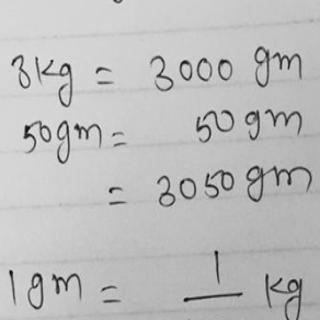 3kg = 3000 gm
50gm = 50 gm
= 3050 gm
1gm = 1/ kg